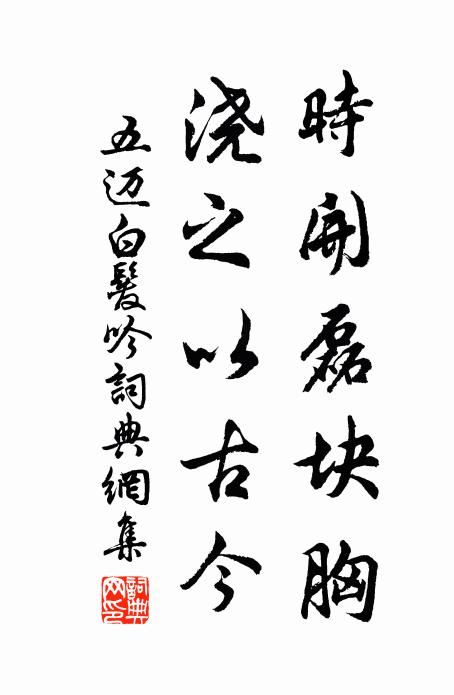 時開磊块胸
浇之以古今
五迈白髮吟詞典網集
詞典网印